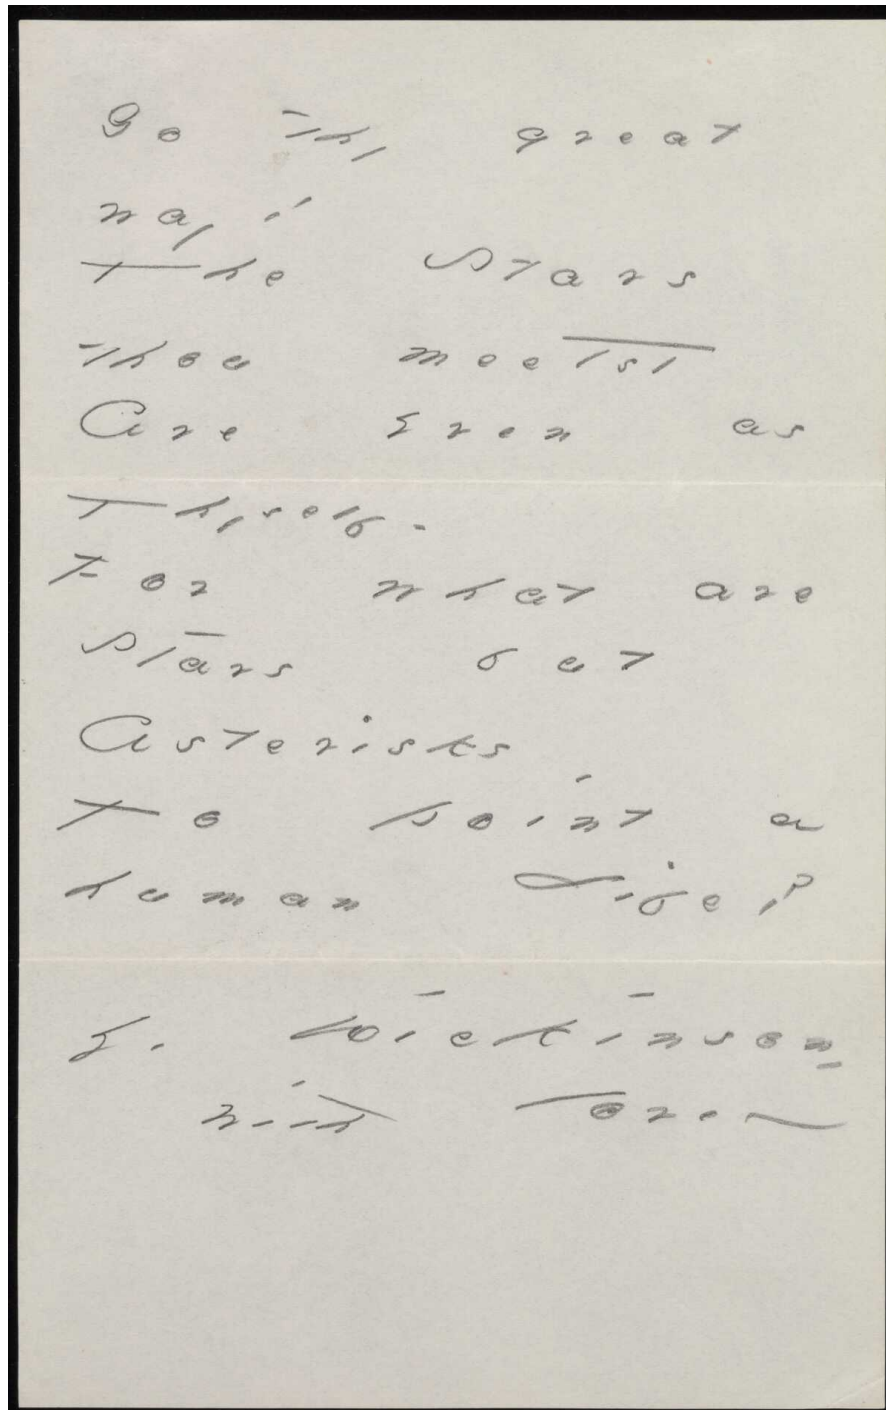 Go thy great
way!
The Stars
thou meetst
Are Even as
Thyself -
For what are
Stars but
Asterisks
To point a
human Life?
E. Dickinson,
with love -